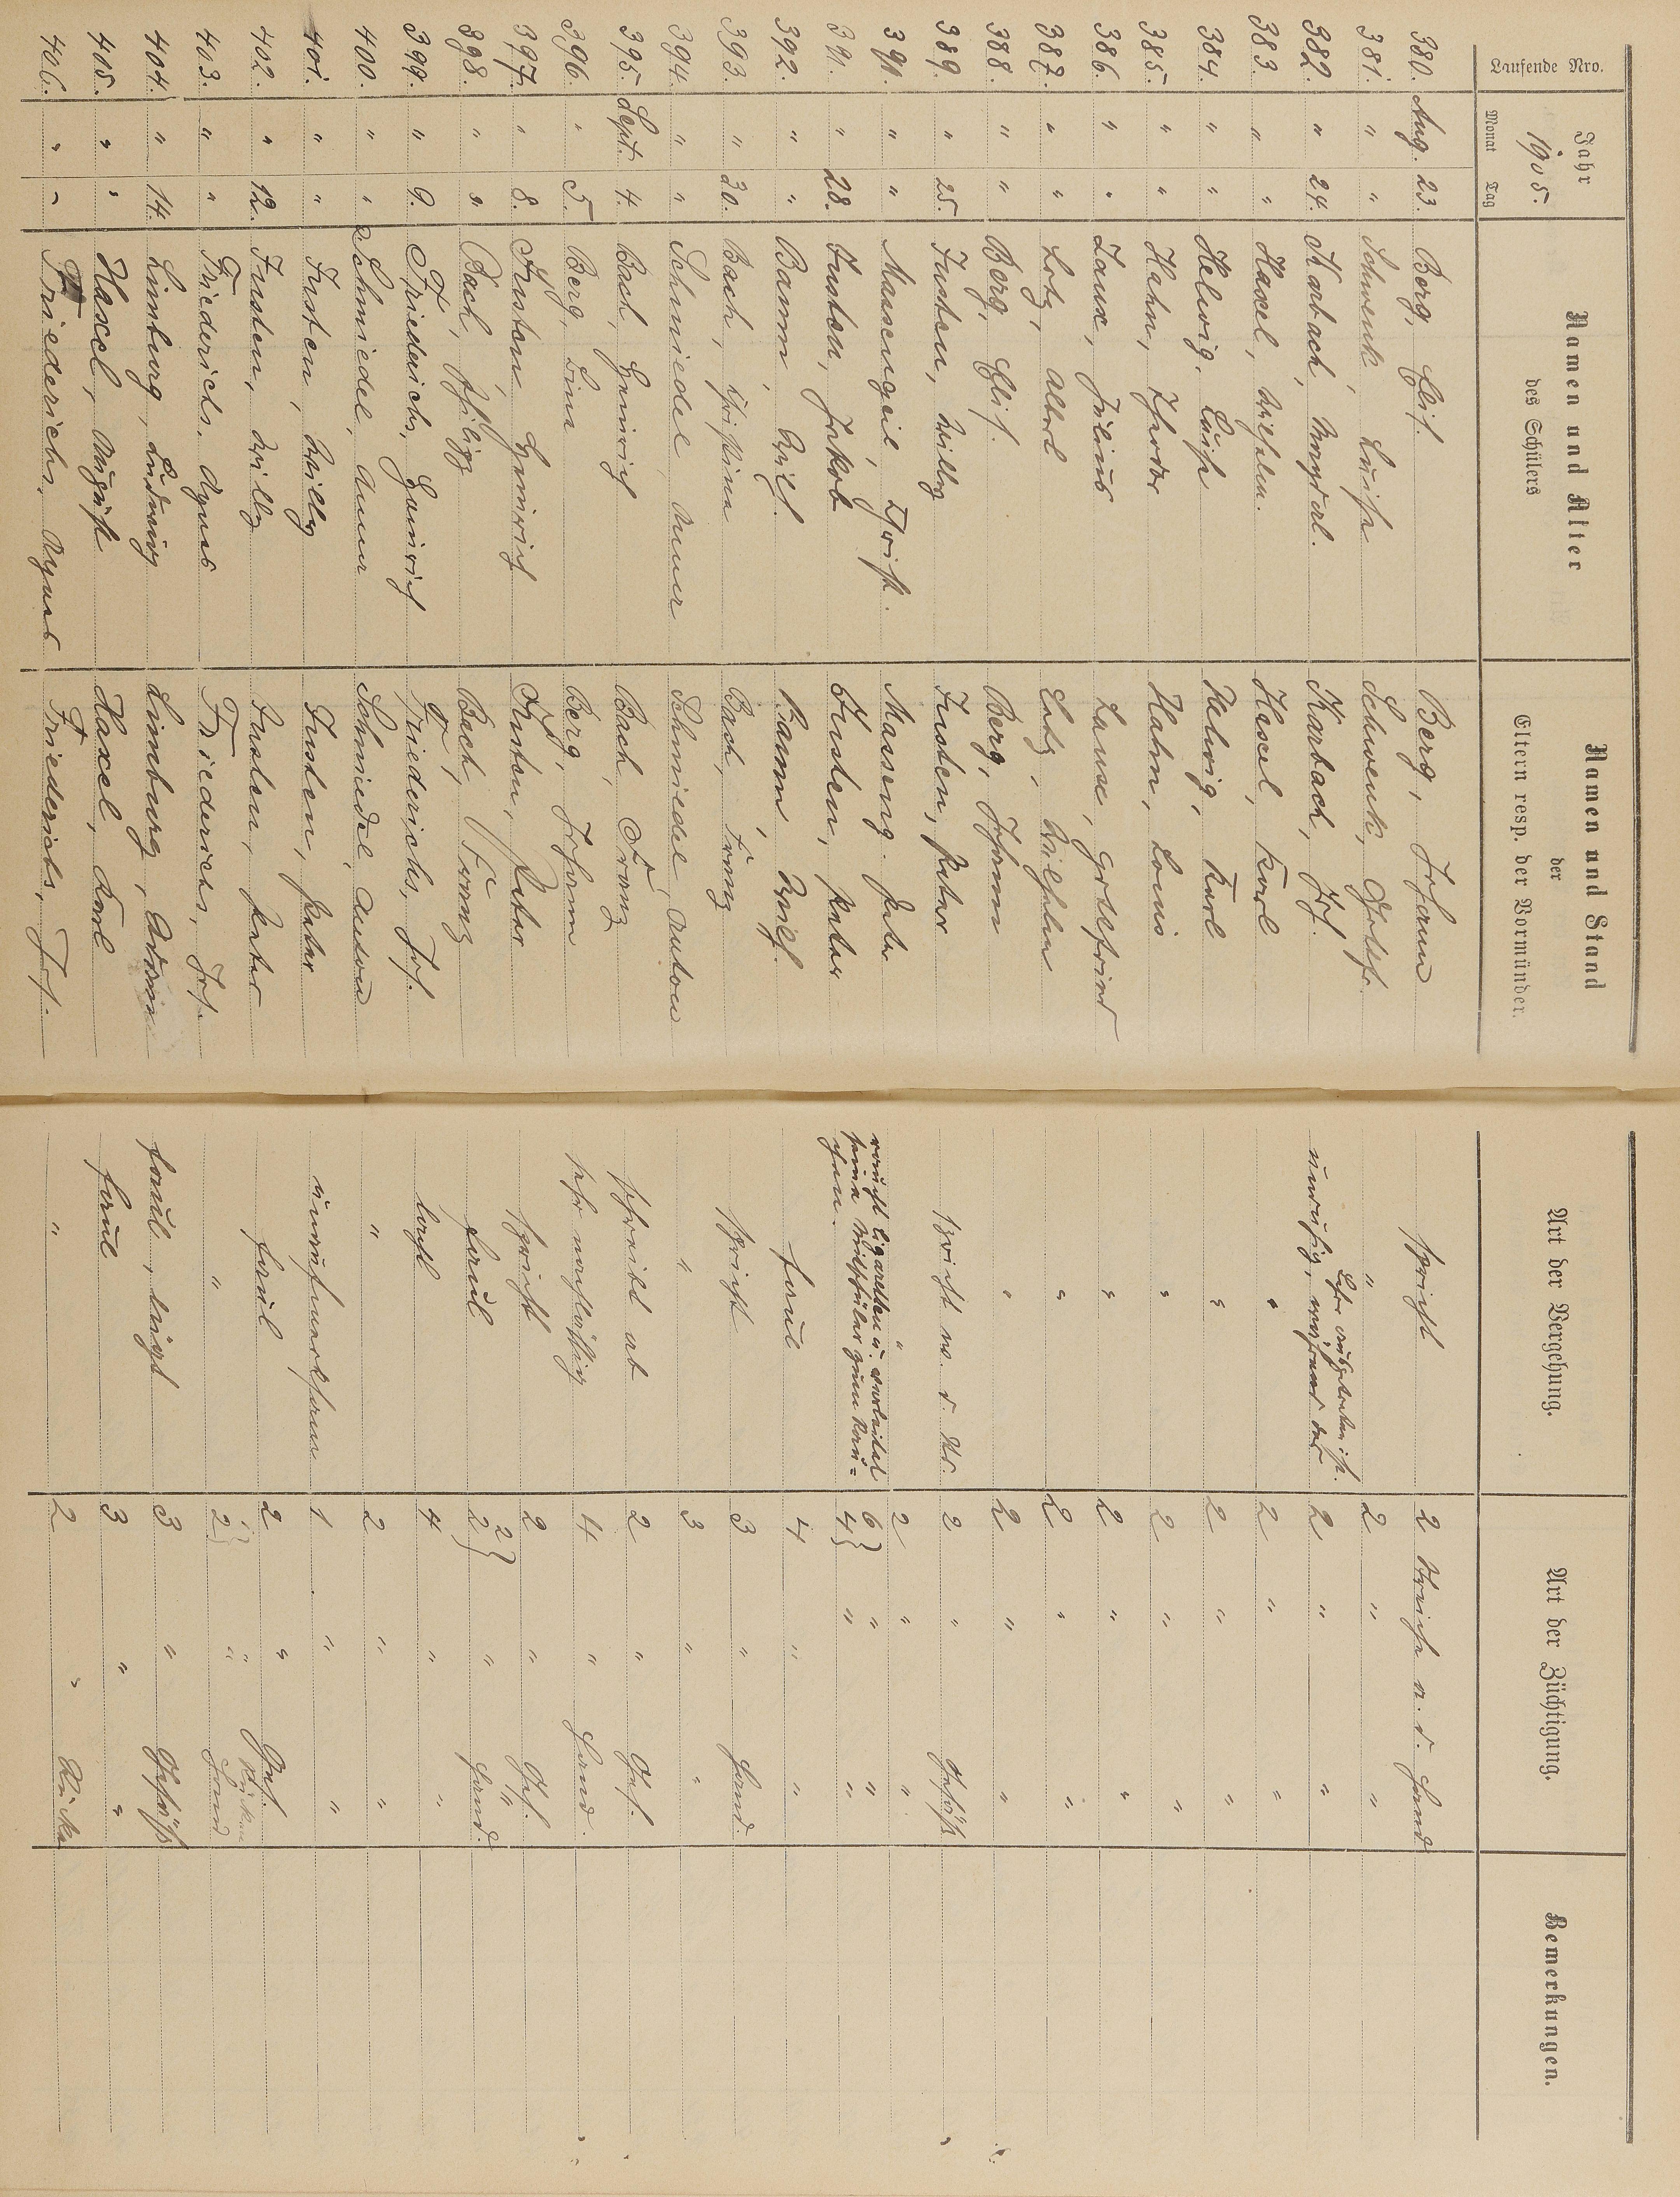 Laufende Nro. | Jahr 1905. Monat Tag | Namen und Alter des Schülers | Namen und Stand der Eltern resp. der Vormünder. | Art der Vergehung. | Art der Züchtigung. | Bemerkungen.
380. Aug. 23. Berg, Elis. Berg, Johann spricht 2 Streiche a. d. Hand
381. " " Schwenk, Luise Schwenk, " 2 " "
382. " 24. Karbach, Karbach, Jos. unruhig, während der Lehr. ausgetreten ist. 2 " "
383. " " Haxel, Wilhelm. Haxel, Karl " 2 " "
384. " " Helwig, Luise Helwig, Karl " 2 " "
385. " " Hahn, Hahn, Louis " 2 " "
386. " " Laux, Julius Laux, Gottfried " 2 " "
387. " " Lotz, Albert Lotz, Wilhelm " 2 " "
388. " " Berg, Elis. Berg, Johann " 2 " "
389. " 25. Justen, Willy Justen, Peter spricht w. d. Str. 2 " Gesäß
390. " " Massengeil, Christ. Masseng. Peter " 2 " "
391. " 28. Justen, Jakob Justen, Peter raucht Cigaretten u. verleitet seine Mitschüler zum Rauchen. 6 } 4 " " " "
392. " " Bamm, Wilh. Bamm, Wilh. faul 4 " "
393. " 30. Bach, Christina Bach, Franz spricht 3 " Hand.
394. " " Schmiedel, Anna Schmiedel, Anton " 3 " "
395. Sept. 4. Bach, Heinrich Bach, Franz schreibt ab 2 " Ges.
396. " 5. Berg, Lina Berg, Johann sehr nachlässig 4 " Hand.
397. " 8. Justen, Heinrich Justen, Peter spricht 2 " Ges.
398. " " Bach, Philipp Bach, Franz faul 2 } 2 " " Hand.
399. " 9. Friederichs, Heinrich Friederichs, Jos. lacht 4 " "
400. " " Schmiedel, Anna Schmiedel, Anton " 2 " "
401. " " Justen, Willy Justen, Peter unaufmerksam 1 " "
402. " 12. Justen, Willy Justen, Peter faul 2 " Ges.
403. " " Friederichs, Agnes Friederichs, Jos. " 2 } " Rücken Hand
404. " 14. Limburg, Ludwig Limburg, faul, trägt 3 " Gesäß
405. " " Haxel, August Haxel, Karl faul 3 " "
406. " " Friederichs, Agnes Friederichs, Jos. " 2 " Rücken